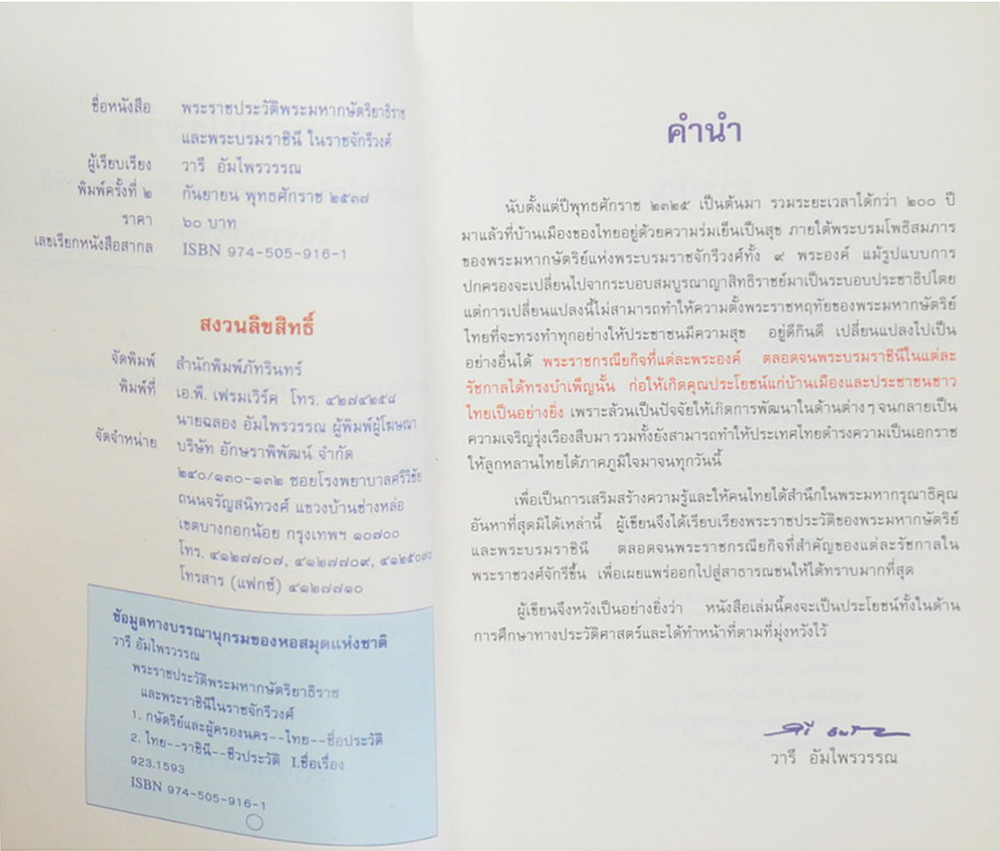 ชื่อหนังสือ พระราชประวัติพระมหากษัตริยาธิราช
และพระบรมราชินี ในราชจักรีวงศ์
ผู้เรียบเรียง วารี อัมไพรวรรณ
พิมพ์ครั้งที่ ๒ กันยายน พุทธศักราช ๒๕๓๗
ราคา ๖๐ บาท
เลขเรียกหนังสือสากล ISBN 974-505-916-1
สงวนลิขสิทธิ์
จัดพิมพ์ สำนักพิมพ์ภัทรินทร์
พิมพ์ที่ เอ.พี. เฟรมเวิร์ค โทร. ๔๒๗๔๒๕๘
นายฉลอง อัมไพรวรรณ ผู้พิมพ์ผู้โฆษณา
จัดจำหน่าย บริษัท อักษราพิพัฒน์ จำกัด
๒๔๐/๑๓๐-๑๓๒ ซอยโรงพยาบาลศรีวิชัย
ถนนจรัญสนิทวงศ์ แขวงบ้านช่างหล่อ
เขตบางกอกน้อย กรุงเทพฯ ๑๐๗๐๐
โทร. ๔๑๒๗๗๐๗, ๔๑๒๗๗๐๙, ๔๑๒๕๐๗๐
โทรสาร (แฟกซ์) ๔๑๒๗๗๑๐
ข้อมูลทางบรรณานุกรมของหอสมุดแห่งชาติ
วารี อัมไพรวรรณ
พระราชประวัติพระมหากษัตริยาธิราช
และพระราชินีในราชจักรีวงศ์
1. กษัตริย์และผู้ครองนคร--ไทย--ชื่อประวัติ
2. ไทย--ราชินี--ชีวประวัติ I.ชื่อเรื่อง
923.1593
ISBN 974-505-916-1
คำนำ
นับตั้งแต่ปีพุทธศักราช ๒๓๒๕ เป็นต้นมา รวมระยะเวลาได้กว่า ๒๐๐ ปี
มาแล้วที่บ้านเมืองของไทยอยู่ด้วยความร่มเย็นเป็นสุข ภายใต้พระบรมโพธิสมภาร
ของพระมหากษัตริย์แห่งพระบรมราชจักรีวงศ์ทั้ง ๙ พระองค์ แม้รูปแบบการ
ปกครองจะเปลี่ยนไปจากระบอบสมบูรณาญาสิทธิราชย์มาเป็นระบอบประชาธิปไตย
แต่การเปลี่ยนแปลงนี้ไม่สามารถทำให้ความตั้งพระราชหฤทัยของพระมหากษัตริย์
ไทยที่จะทรงทำทุกอย่างให้ประชาชนมีความสุข อยู่ดีกินดี เปลี่ยนแปลงไปเป็น
อย่างอื่นได้ พระราชกรณียกิจที่แต่ละพระองค์ ตลอดจนพระบรมราชินีในแต่ละ
รัชกาลได้ทรงบำเพ็ญนั้น ก่อให้เกิดคุณประโยชน์แก่บ้านเมืองและประชาชนชาว
ไทยเป็นอย่างยิ่ง เพราะล้วนเป็นปัจจัยให้เกิดการพัฒนาในด้านต่างๆ จนกลายเป็น
ความเจริญรุ่งเรืองสืบมา รวมทั้งยังสามารถทำให้ประเทศไทยดำรงความเป็นเอกราช
ให้ลูกหลานไทยได้ภาคภูมิใจมาจนทุกวันนี้
เพื่อเป็นการเสริมสร้างความรู้และให้คนไทยได้สำนึกในพระมหากรุณาธิคุณ
อันหาที่สุดมิได้เหล่านี้ ผู้เขียนจึงได้เรียบเรียงพระราชประวัติของพระมหากษัตริย์
และพระบรมราชินี ตลอดจนพระราชกรณียกิจที่สำคัญของแต่ละรัชกาลใน
พระราชวงศ์จักรีขึ้น เพื่อเผยแพร่ออกไปสู่สาธารณชนให้ได้ทราบมากที่สุด
ผู้เขียนจึงหวังเป็นอย่างยิ่งว่า หนังสือเล่มนี้คงจะเป็นประโยชน์ทั้งในด้าน
การศึกษาทางประวัติศาสตร์และได้ทำหน้าที่ตามที่มุ่งหวังไว้
วารี อัมไพรวรรณ